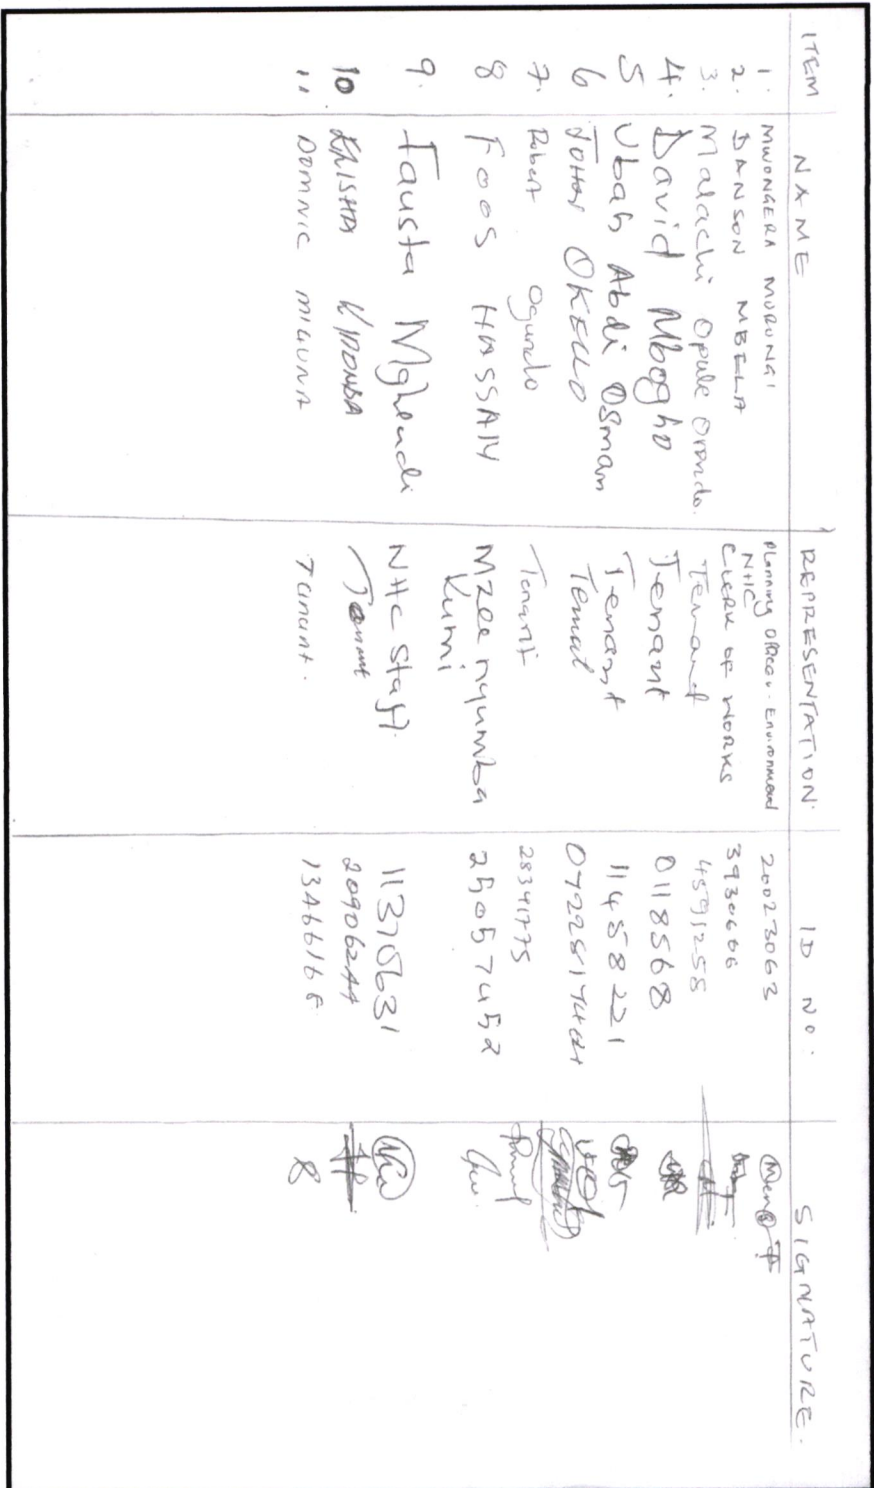 ITEM NAME REPRESENTATION. ID NO. SIGNATURE.
1. MWONGERA MURUNGI Planning Officer - Environment NHC 20023063
2. DANSON MBELA CLERK OF WORKS 3930606
3. Malachi Opule Orondo. Tenant 4591258
4. David Mbogho Tenant 0118568
5 Ubah Abdi Osman Tenant 11458221
6 OKELLO Tenant
7. Robert Ogundo Tenant 28341775
8 FOOS HASSAN Mzee nyumba Kumi 25057452
9. Fausta Mghendi NHC Staff. 11370631
10 Tenant
11 DOMNIC MIGUNA Tenant.